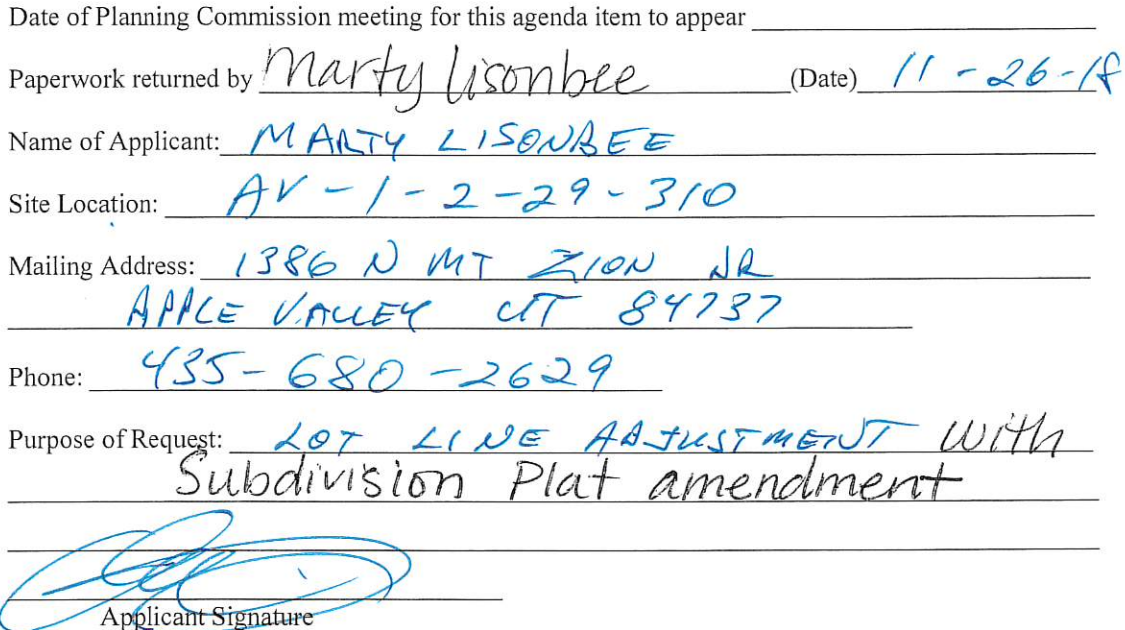 Date of Planning Commission meeting for this agenda item to appear
Paperwork returned by Marty lisonbee (Date) 11-26-18
Name of Applicant: MARTY LISONBEE
Site Location: AV-1-2-29-310
Mailing Address: 1386 N MT ZION DR
APPLE VALLEY UT 84737
Phone: 435-680-2629
Purpose of Request: LOT LINE ADJUSTMENT with
Subdivision Plat amendment
Applicant Signature